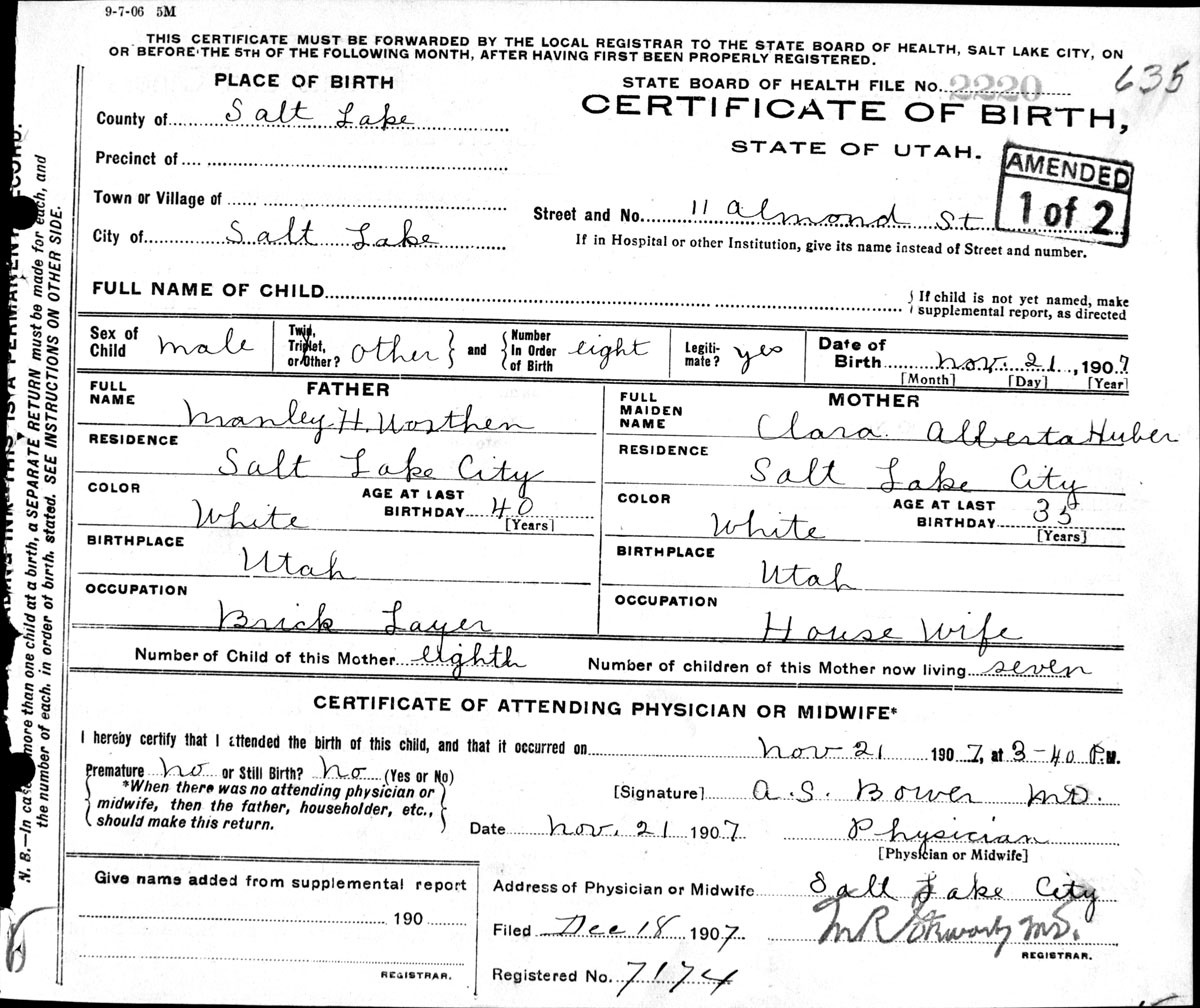 9-7-06 5M
THIS CERTIFICATE MUST BE FORWARDED BY THE LOCAL REGISTRAR TO THE STATE BOARD OF HEALTH, SALT LAKE CITY, ON
OR BEFORE THE 5TH OF THE FOLLOWING MONTH, AFTER HAVING FIRST BEEN PROPERLY REGISTERED.
PLACE OF BIRTH
STATE BOARD OF HEALTH FILE No. 2220
635
CERTIFICATE OF BIRTH,
STATE OF UTAH.
AMENDED
1 of 2
County of Salt Lake
Precinct of
Town or Village of
City of Salt Lake
Street and No. 11 Almond St
If in Hospital or other Institution, give its name instead of Street and number.
FULL NAME OF CHILD
{ If child is not yet named, make
supplemental report, as directed
Sex of Child male
Twin, Triplet, or Other? other } and { Number In Order of Birth eight
Legiti-mate? yes
Date of Birth Nov. 21, 1907
[Month] [Day] [Year]
FATHER
FULL NAME
Manley H. Worthen
RESIDENCE
Salt Lake City
COLOR
White
AGE AT LAST BIRTHDAY 40
[Years]
BIRTHPLACE
Utah
OCCUPATION
Brick Layer
MOTHER
FULL MAIDEN NAME
Clara Alberta Huber
RESIDENCE
Salt Lake City
COLOR
White
AGE AT LAST BIRTHDAY 35
[Years]
BIRTHPLACE
Utah
OCCUPATION
House Wife
Number of Child of this Mother eighth
Number of children of this Mother now living seven
CERTIFICATE OF ATTENDING PHYSICIAN OR MIDWIFE*
I hereby certify that I attended the birth of this child, and that it occurred on Nov 21 1907, at 3-40 P.M.
Premature No or Still Birth? No (Yes or No)
{ *When there was no attending physician or
midwife, then the father, householder, etc.,
should make this return. }
[Signature] A.S. Bower MD.
Date Nov. 21 1907
Physician
[Physician or Midwife]
Give name added from supplemental report
190
REGISTRAR.
Address of Physician or Midwife Salt Lake City
Filed Dec 18 1907
REGISTRAR.
Registered No. 7174
N. B.—In case more than one child at a birth, a SEPARATE RETURN must be made for each, and
the number of each, in order of birth, stated. SEE INSTRUCTIONS ON OTHER SIDE.
INK—THIS IS A PERMANENT RECORD.